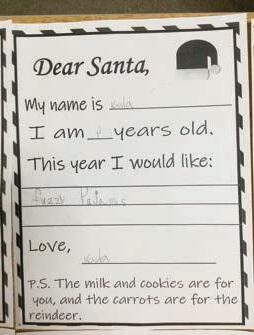 Dear Santa,
My name is
I am years old.
This year I would like:
fuzzy Pajams
Love,
P.S. The milk and cookies are for
you, and the carrots are for the
reindeer.